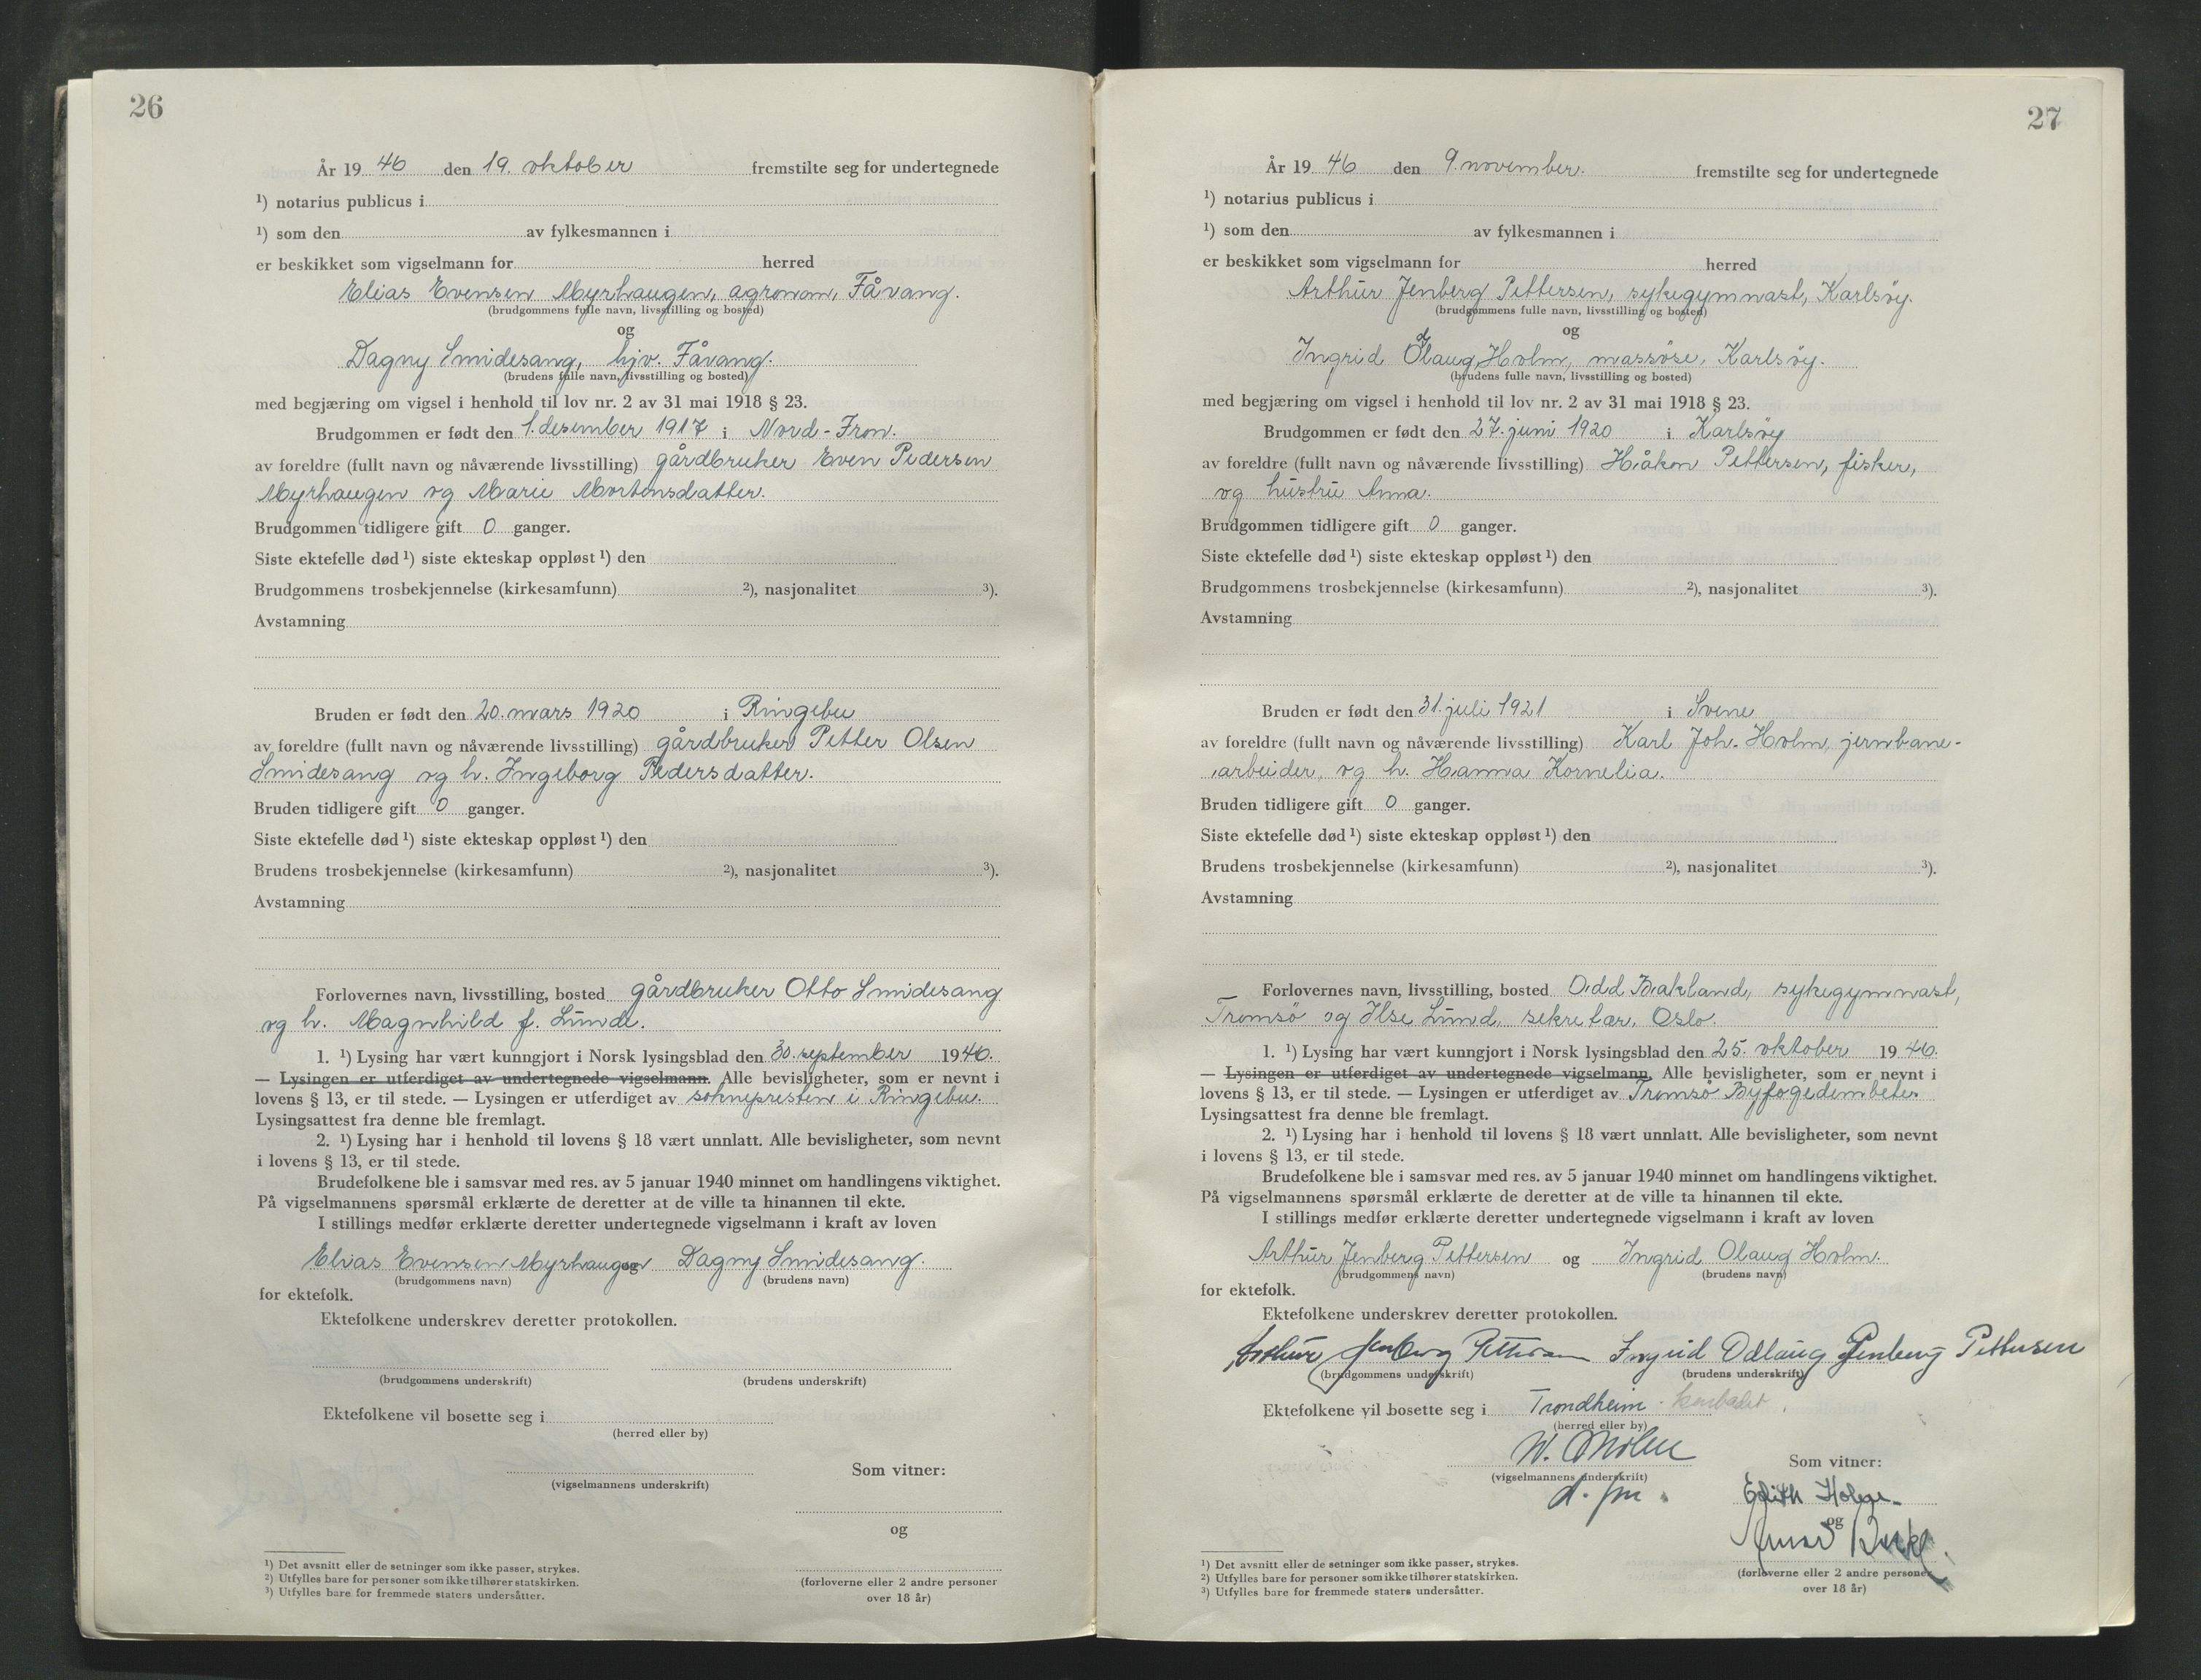 26
År 19 46 den 19. oktober fremstilte seg for undertegnede
¹) notarius publicus i
¹) som den av fylkesmannen i
er beskikket som vigselmann for herred
Elias Evensen Myrhaugen, agronom, Fåvang.
(brudgommens fulle navn, livsstilling og bosted)
og
Dagny Smidesang, hjv. Fåvang.
(brudens fulle navn, livsstilling og bosted)
med begjæring om vigsel i henhold til lov nr. 2 av 31 mai 1918 § 23.
Brudgommen er født den 1. desember 1917 i Nord-Fron.
av foreldre (fullt navn og nåværende livsstilling) gårdbruker Even Pedersen
Myrhaugen og Marie Mortensdatter.
Brudgommen tidligere gift 0 ganger.
Siste ektefelle død ¹) siste ekteskap oppløst ¹) den
Brudgommens trosbekjennelse (kirkesamfunn) ²), nasjonalitet ³).
Avstamning
Bruden er født den 20. mars 1920 i Ringebu
av foreldre (fullt navn og nåværende livsstilling) gårdbruker Petter Olsen
Smidesang og h. Ingeborg Pedersdatter.
Bruden tidligere gift 0 ganger.
Siste ektefelle død ¹) siste ekteskap oppløst ¹) den
Brudens trosbekjennelse (kirkesamfunn) ²), nasjonalitet ³).
Avstamning
Forlovernes navn, livsstilling, bosted gårdbruker Otto Smidesang
og h. Magnhild f. Lunde.
1. ¹) Lysing har vært kunngjort i Norsk lysingsblad den 30. september 1946.
— Lysingen er utferdiget av undertegnede vigselmann. Alle bevisligheter, som er nevnt i
lovens § 13, er til stede. — Lysingen er utferdiget av soknepresten i Ringebu.
Lysingsattest fra denne ble fremlagt.
2. ¹) Lysing har i henhold til lovens § 18 vært unnlatt. Alle bevisligheter, som nevnt
i lovens § 13, er til stede.
Brudefolkene ble i samsvar med res. av 5 januar 1940 minnet om handlingens viktighet.
På vigselmannens spørsmål erklærte de deretter at de ville ta hinannen til ekte.
I stillings medfør erklærte deretter undertegnede vigselmann i kraft av loven
Elias Evensen Myrhaugen og Dagny Smidesang.
(brudgommens navn) (brudens navn)
for ektefolk.
Ektefolkene underskrev deretter protokollen.
(brudgommens underskrift) (brudens underskrift)
Ektefolkene vil bosette seg i
(herred eller by)
Som vitner:
(vigselmannens underskrift)
og
¹) Det avsnitt eller de setninger som ikke passer, strykes.
²) Utfylles bare for personer som ikke tilhører statskirken.
³) Utfylles bare for fremmede staters undersåtter.
(forloverne eller 2 andre personer
over 18 år)
27
År 19 46 den 9. november. fremstilte seg for undertegnede
¹) notarius publicus i
¹) som den av fylkesmannen i
er beskikket som vigselmann for herred
Arthur Jenberg Pettersen, sykegymnast, Karlsøy.
(brudgommens fulle navn, livsstilling og bosted)
og
Ingrid Odlaug Holm, massøse, Karlsøy.
(brudens fulle navn, livsstilling og bosted)
med begjæring om vigsel i henhold til lov nr. 2 av 31 mai 1918 § 23.
Brudgommen er født den 27. juni 1920 i Karlsøy
av foreldre (fullt navn og nåværende livsstilling) Håkon Pettersen, fisker,
og hustru Anna.
Brudgommen tidligere gift 0 ganger.
Siste ektefelle død ¹) siste ekteskap oppløst ¹) den
Brudgommens trosbekjennelse (kirkesamfunn) ²), nasjonalitet ³).
Avstamning
Bruden er født den 31. juli 1921 i Svene
av foreldre (fullt navn og nåværende livsstilling) Karl Joh. Holm, jernbane-
arbeider, og h. Hanna Kornelia.
Bruden tidligere gift 0 ganger.
Siste ektefelle død ¹) siste ekteskap oppløst ¹) den
Brudens trosbekjennelse (kirkesamfunn) ²), nasjonalitet ³).
Avstamning
Forlovernes navn, livsstilling, bosted Odd Bakland, sykegymnast,
Tromsö og Ilse Lund, sekretær, Oslo.
1. ¹) Lysing har vært kunngjort i Norsk lysingsblad den 25. oktober 1946.
— Lysingen er utferdiget av undertegnede vigselmann. Alle bevisligheter, som er nevnt i
lovens § 13, er til stede. — Lysingen er utferdiget av Tromsö Byfogedembete.
Lysingsattest fra denne ble fremlagt.
2. ¹) Lysing har i henhold til lovens § 18 vært unnlatt. Alle bevisligheter, som nevnt
i lovens § 13, er til stede.
Brudefolkene ble i samsvar med res. av 5 januar 1940 minnet om handlingens viktighet.
På vigselmannens spørsmål erklærte de deretter at de ville ta hinannen til ekte.
I stillings medfør erklærte deretter undertegnede vigselmann i kraft av loven
Arthur Jenberg Pettersen og Ingrid Olaug Holm.
(brudgommens navn) (brudens navn)
for ektefolk.
Ektefolkene underskrev deretter protokollen.
Arthur Jenberg Pettersen Ingrid Odlaug Jenberg Pettersen
(brudgommens underskrift) (brudens underskrift)
Ektefolkene vil bosette seg i Trondheim.
(herred eller by)
Som vitner:
(vigselmannens underskrift)
Edith
og
¹) Det avsnitt eller de setninger som ikke passer, strykes.
²) Utfylles bare for personer som ikke tilhører statskirken.
³) Utfylles bare for fremmede staters undersåtter.
(forloverne eller 2 andre personer
over 18 år)